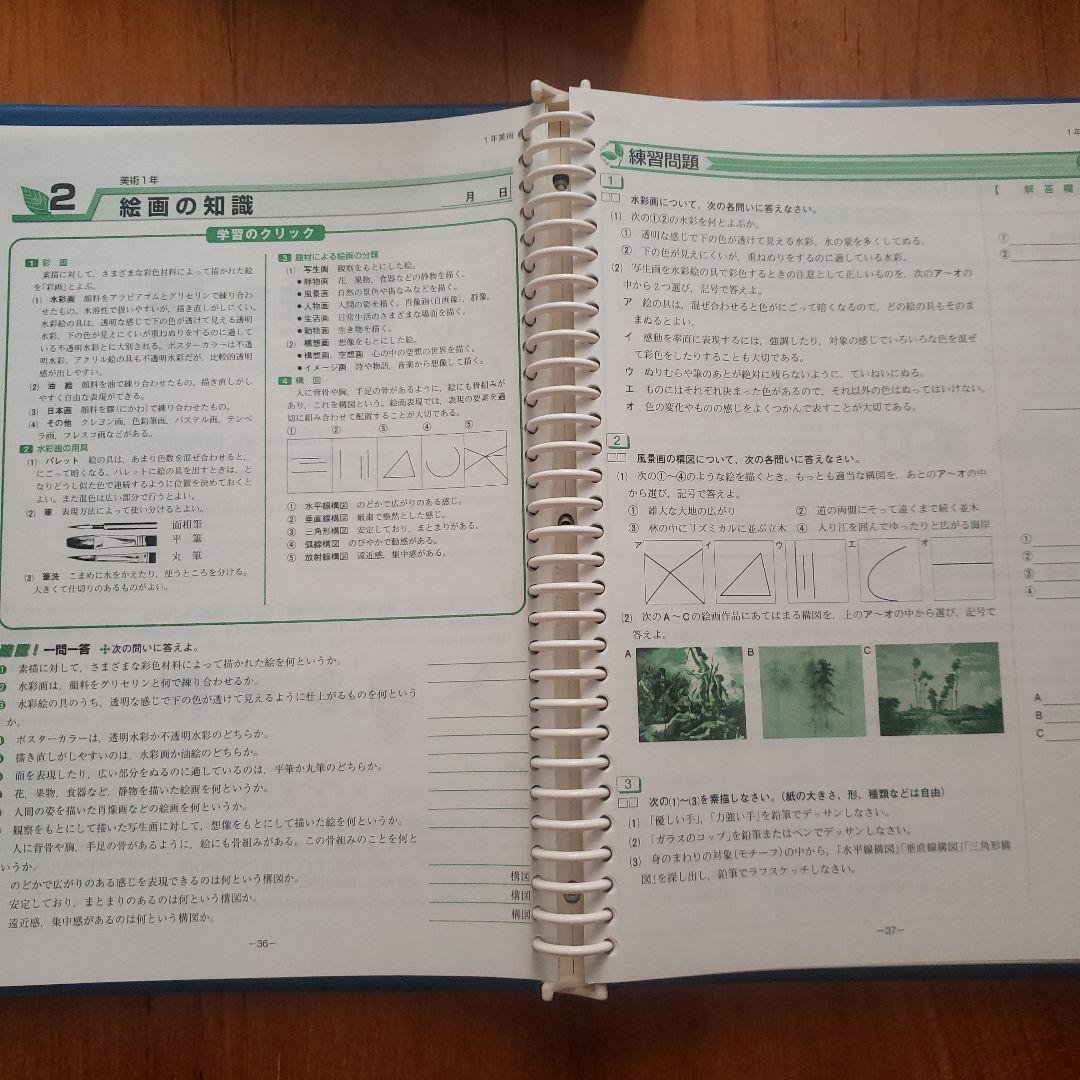 1年美術
2
美術1年
絵画の知識
月 日
学習のクリック
1 彩画
素描に対して，さまざまな彩色材料によって描かれた絵
を「彩画」とよぶ。
(1) 水彩画 顔料をアラビアゴムとグリセリンで練り合わ
せたもの。水溶性で扱いやすいが，描き直しがしにくい。
水彩絵の具は，透明な感じで下の色が透けて見える透明
水彩，下の色が見えにくいが重ねぬりをするのに適して
いる不透明水彩とに大別される。ポスターカラーは不透
明水彩，アクリル絵の具も不透明水彩だが，比較的透明
感が出しやすい。
(2) 油絵 顔料を油で練り合わせたもの。描き直しがし
やすく自由な表現ができる。
(3) 日本画 顔料を膠(にかわ)で練り合わせたもの。
(4) その他 クレヨン画，色鉛筆画，パステル画，テンペ
ラ画，フレスコ画などがある。
2 水彩画の用具
(1) パレット 絵の具は，あまり色数を混ぜ合わせると，
にごって暗くなる。パレットに絵の具を出すときは，と
なりどうし似た色で連続するように位置を決めておくと
よい。また混色は広い部分で行うとよい。
(2) 筆 表現方法によって使い分けるとよい。
面相筆
平筆
丸筆
(3) 筆洗 こまめに水をかえたり，使うところを分ける。
大きくて仕切りのあるものがよい。
3 題材による絵画の分類
(1) 写生画 観察をもとにした絵。
●静物画 花，果物，食器などの静物を描く。
●風景画 自然の景色や街なみなどを描く。
●人物画 人間の姿を描く。肖像画(自画像)，群像。
●生活画 日常生活のさまざまな場面を描く。
●動物画 生き物を描く。
(2) 構想画 想像をもとにした絵。
●構想画，空想画 心の中の空想の世界を描く。
●イメージ画 詩や物語，音楽から想像して描く。
4 構図
人に背骨や胸，手足の骨があるように，絵にも骨組みが
あり，これを構図という。絵画表現では，表現の要素を適
切に組み合わせて配置することが大切である。
① ② ③ ④ ⑤
① 水平線構図 のどかで広がりのある感じ。
② 垂直線構図 厳粛で整然とした感じ。
③ 三角形構図 安定しており，まとまりがある。
④ 弧線構図 のびやかで動感がある。
⑤ 放射線構図 遠近感，集中感がある。
！一問一答 次の問いに答えよ。
素描に対して，さまざまな彩色材料によって描かれた絵を何というか。
水彩画は，顔料をグリセリンと何で練り合わせるか。
水彩絵の具のうち，透明な感じで下の色が透けて見えるように仕上がるものを何という
か。
ポスターカラーは，透明水彩か不透明水彩のどちらか。
描き直しがしやすいのは，水彩画か油絵のどちらか。
面を表現したり，広い部分をぬるのに適しているのは，平筆か丸筆のどちらか。
花，果物，食器など，静物を描いた絵画を何というか。
人間の姿を描いた肖像画などの絵画を何というか。
観察をもとにして描いた写生画に対して，想像をもとにして描いた絵を何というか。
人に背骨や胸，手足の骨があるように，絵にも骨組みがある。この骨組みのことを何と
いうか。
のどかで広がりのある感じを表現できるのは何という構図か。
構図
安定しており，まとまりのあるのは何という構図か。
構図
遠近感，集中感があるのは何という構図か。
構図
－36－
1年
練習問題
【 解答欄
1
水彩画について，次の各問いに答えなさい。
(1) 次の①②の水彩を何とよぶか。
① 透明な感じで下の色が透けて見える水彩。水の量を多くしてぬる。
② 下の色が見えにくいが，重ねぬりをするのに適している水彩。
(2) 写生画を水彩絵の具で彩色するときの注意として正しいものを，次のア～オの
中から2つ選び，記号で答えよ。
ア 絵の具は，混ぜ合わせると色がにごって暗くなるので，どの絵の具もそのま
まぬるとよい。
イ 感動を率直に表現するには，強調したり，対象の感じでいろいろな色を混ぜ
て彩色をしたりすることも大切である。
ウ ぬりむらや筆のあとが絶対に残らないように，ていねいにぬる。
エ ものにはそれぞれ決まった色があるので，それ以外の色はぬってはいけない。
オ 色の変化やものの感じをよくつかんで表すことが大切である。
①
②
2
風景画の構図について，次の各問いに答えなさい。
(1) 次の①～④のような絵を描くとき，もっとも適当な構図を，あとのア～オの中
から選び，記号で答えよ。
① 雄大な大地の広がり ② 道の両側にそって遠くまで続く並木
③ 林の中にリズミカルに並ぶ立木 ④ 入り江を囲んでゆったりと広がる海岸
ア イ ウ エ オ
①
②
③
④
(2) 次のA～Cの絵画作品にあてはまる構図を，上のア～オの中から選び，記号で
答えよ。
A B C
A
B
C
3
次の(1)～(3)を素描しなさい。(紙の大きさ，形，種類などは自由)
(1) 「優しい手」，「力強い手」を鉛筆でデッサンしなさい。
(2) 「ガラスのコップ」を鉛筆またはペンでデッサンしなさい。
(3) 身のまわりの対象(モチーフ)の中から，「水平線構図」「垂直線構図」「三角形構
図」を探し出し，鉛筆でラフスケッチしなさい。
－37－